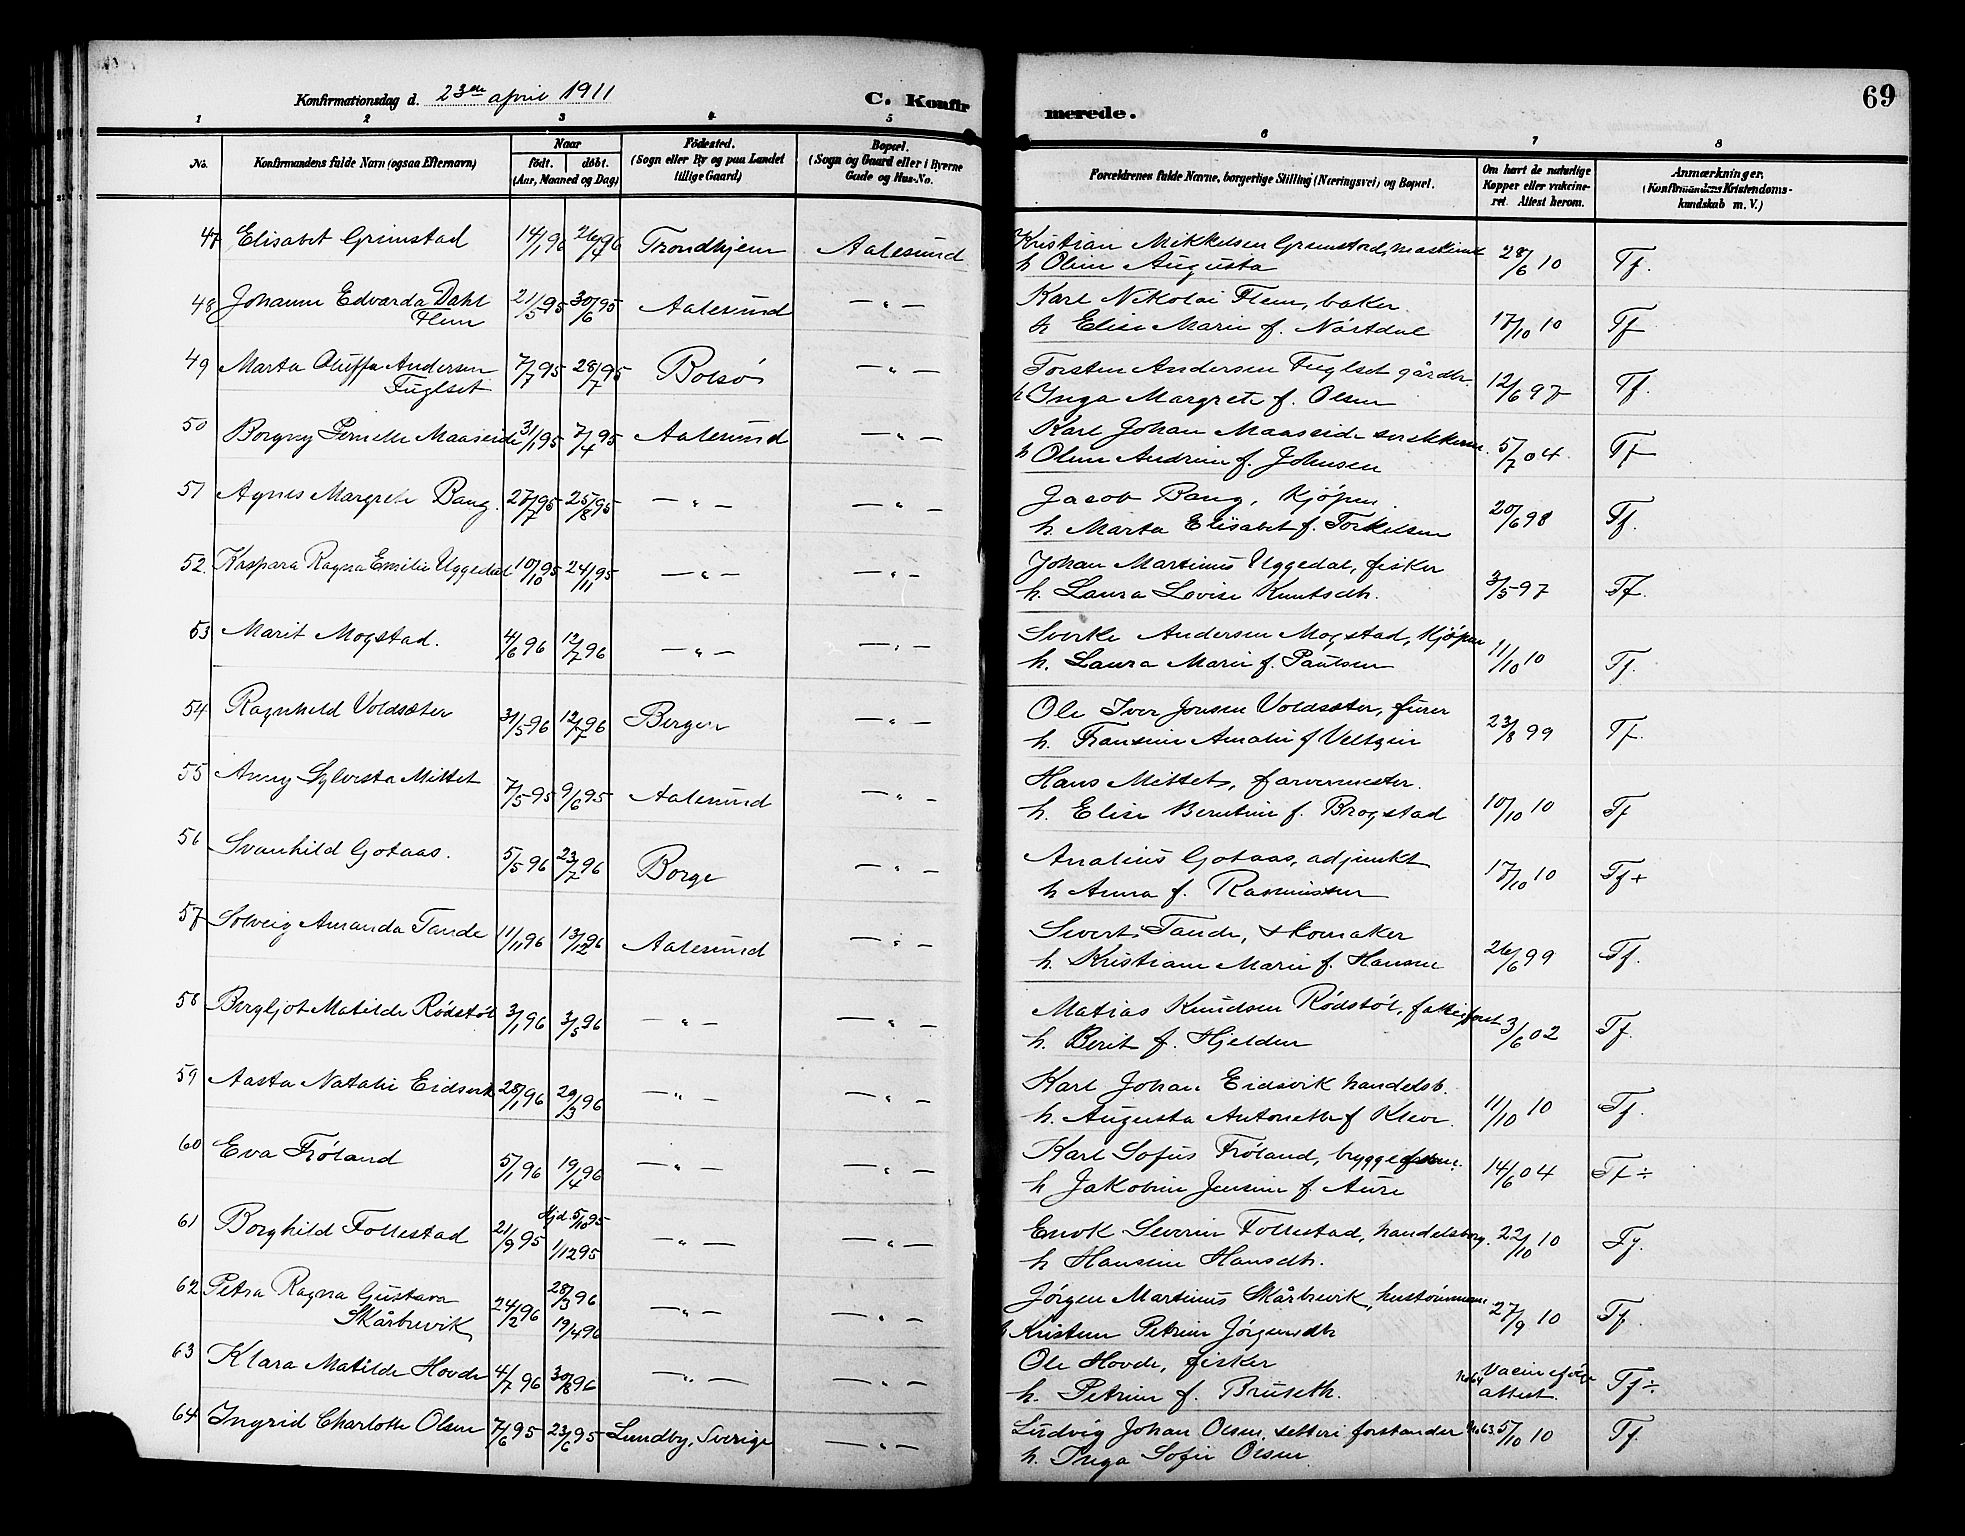 Konfirmationsdag d. 23de april 1911
C. Konfirmerede.
69
1 2 3 4 5 6 7 8
No.
Konfirmandens fulde Navn (ogsaa Efternavn)
Naar
födt. döbt.
(Aar, Maaned og Dag)
Födested.
(Sogn eller By og paa Landet
tillige Gaard)
Bopæl.
(Sogn og Gaard eller i Byerne
Gade og Hus-No.
Forældrenes fulde Navne, borgerlige Stilling (Næringsvei) og Bopæl.
Om havt de naturlige
Kopper eller vakcine-
ret. Attest herom.
Anmærkninger.
(Konfirmandens Kristendoms-
kundskab m. V.)
47 Elisabet Grimstad 14/1 96 26/4 96 Trondhjem Aalesund Kristian Mikkelsen Grimstad,
h Oline Augusta 28/6 10 Tf.
48 Johanne Edvarda Dahl
Flem 21/5 95 30/6 95 Aalesund — " — Karl Nikolai Flem, baker
h Elise Marie f. Nörtdal 17/10 10 Tf
49 Marta Oluffa Andersen
Fuglset 7/7 95 28/7 95 Bolsö — " — Torsten Andersen Fuglset gårdbr.
h Inga Margrete f. Olsen 12/6 97 Tf.
50 Borgny Pernelle Maaseide 31/1 95 7/4 95 Aalesund — " — Karl Johan Maaseide
h Oline Andrine f. Johnsen 5/7 04 Tf
51 Agnes Margrete Bang. 27/7 95 25/8 95 — " — — " — Jacob Bang, kjöpm.
h. Marta Elisabet f. Torkelsen 20/6 98 Tf.
52. Kaspara Ragna Emilie Uggedal 10/10 95 24/11 95 — " — — " — Johan Martinus Uggedal, fisker
h. Laura Lovise Knutsdtr. 3/5 97 Tf.
53 Marit Mogstad. 4/6 96 12/7 96 — " — — " — Sverke Andersen Mogstad, kjöpm
h. Laura Marie f. Paulsen 11/10 10 Tf.
54 Ragnhild Voldsæter 31/5 96 12/7 96 Bergen — " — Ole Iver Jonsen Voldsæter, furer
h. Fransine Amalie f 23/8 99 Tf.
55 Anny Sylvesta Mittet 7/5 95 9/6 95 Aalesund — " — Hans Mittet, farvermester.
h. Elise Berntine f. Brogstad 10/10 10 Tf
56 Svanhild Gotaas. 5/5 96 23/7 96 Borge — " — Analius Gotaas, adjunkt
h Anna f. Rasmussen 17/10 10 Tf +
57 Solveig Amanda Tande 11/11 96 13/12 96 Aalesund — " — Sivert Tande, skomaker
h. Kristiane Marie f. Hansen 26/6 99 Tf.
58 Bergljot Matilde Rödstöl 3/1 96 3/5 96 — " — — " — Matias Knudsen Rödstöl,
h. Berit f. Hjelden 3/6 02 Tf.
59 Aasta Natalie Eidsvik 28/1 96 29/3 96 — " — — " — Karl Johan Eidsvik handelsb.
h. Augusta Antonette f Kleve. 11/10 10 Tf.
60 Eva Fröland 5/1 96 19/4 96 — " — — " — Karl Sofus Fröland, bryggeform.
h Jakobine Jensine f. Aure 14/6 04 Tf ÷
61 Borghild Follestad 21/9 95 Hjd. 5/10 95
1/12 95 — " — — " — Enok Severin Follestad, handelsborg.
h Hansine Hansdtr. 22/10 10 Tf.
62 Petra Ragna Gustava
Skårbrevik 24/2 96 28/3 96
19/4 96 — " — — " — Jörgen Martinus Skårbrevik, hustömmerm.
h Kristine Petrine Jörgensdtr 27/9 10 Tf.
63 Klara Matilde Hovde 4/7 96 30/8 96 — " — — " — Ole Hovde, fisker
h. Petrine f. Bruseth. No 64 attest. Tf ÷
64 Ingrid Charlotte Olsen 7/6 95 23/6 95 Lundby, Sverige — " — Ludvig Johan Olsen, setteri forstander
h. Inga Sofie Olsen No 63. 5/10 10 Tf.